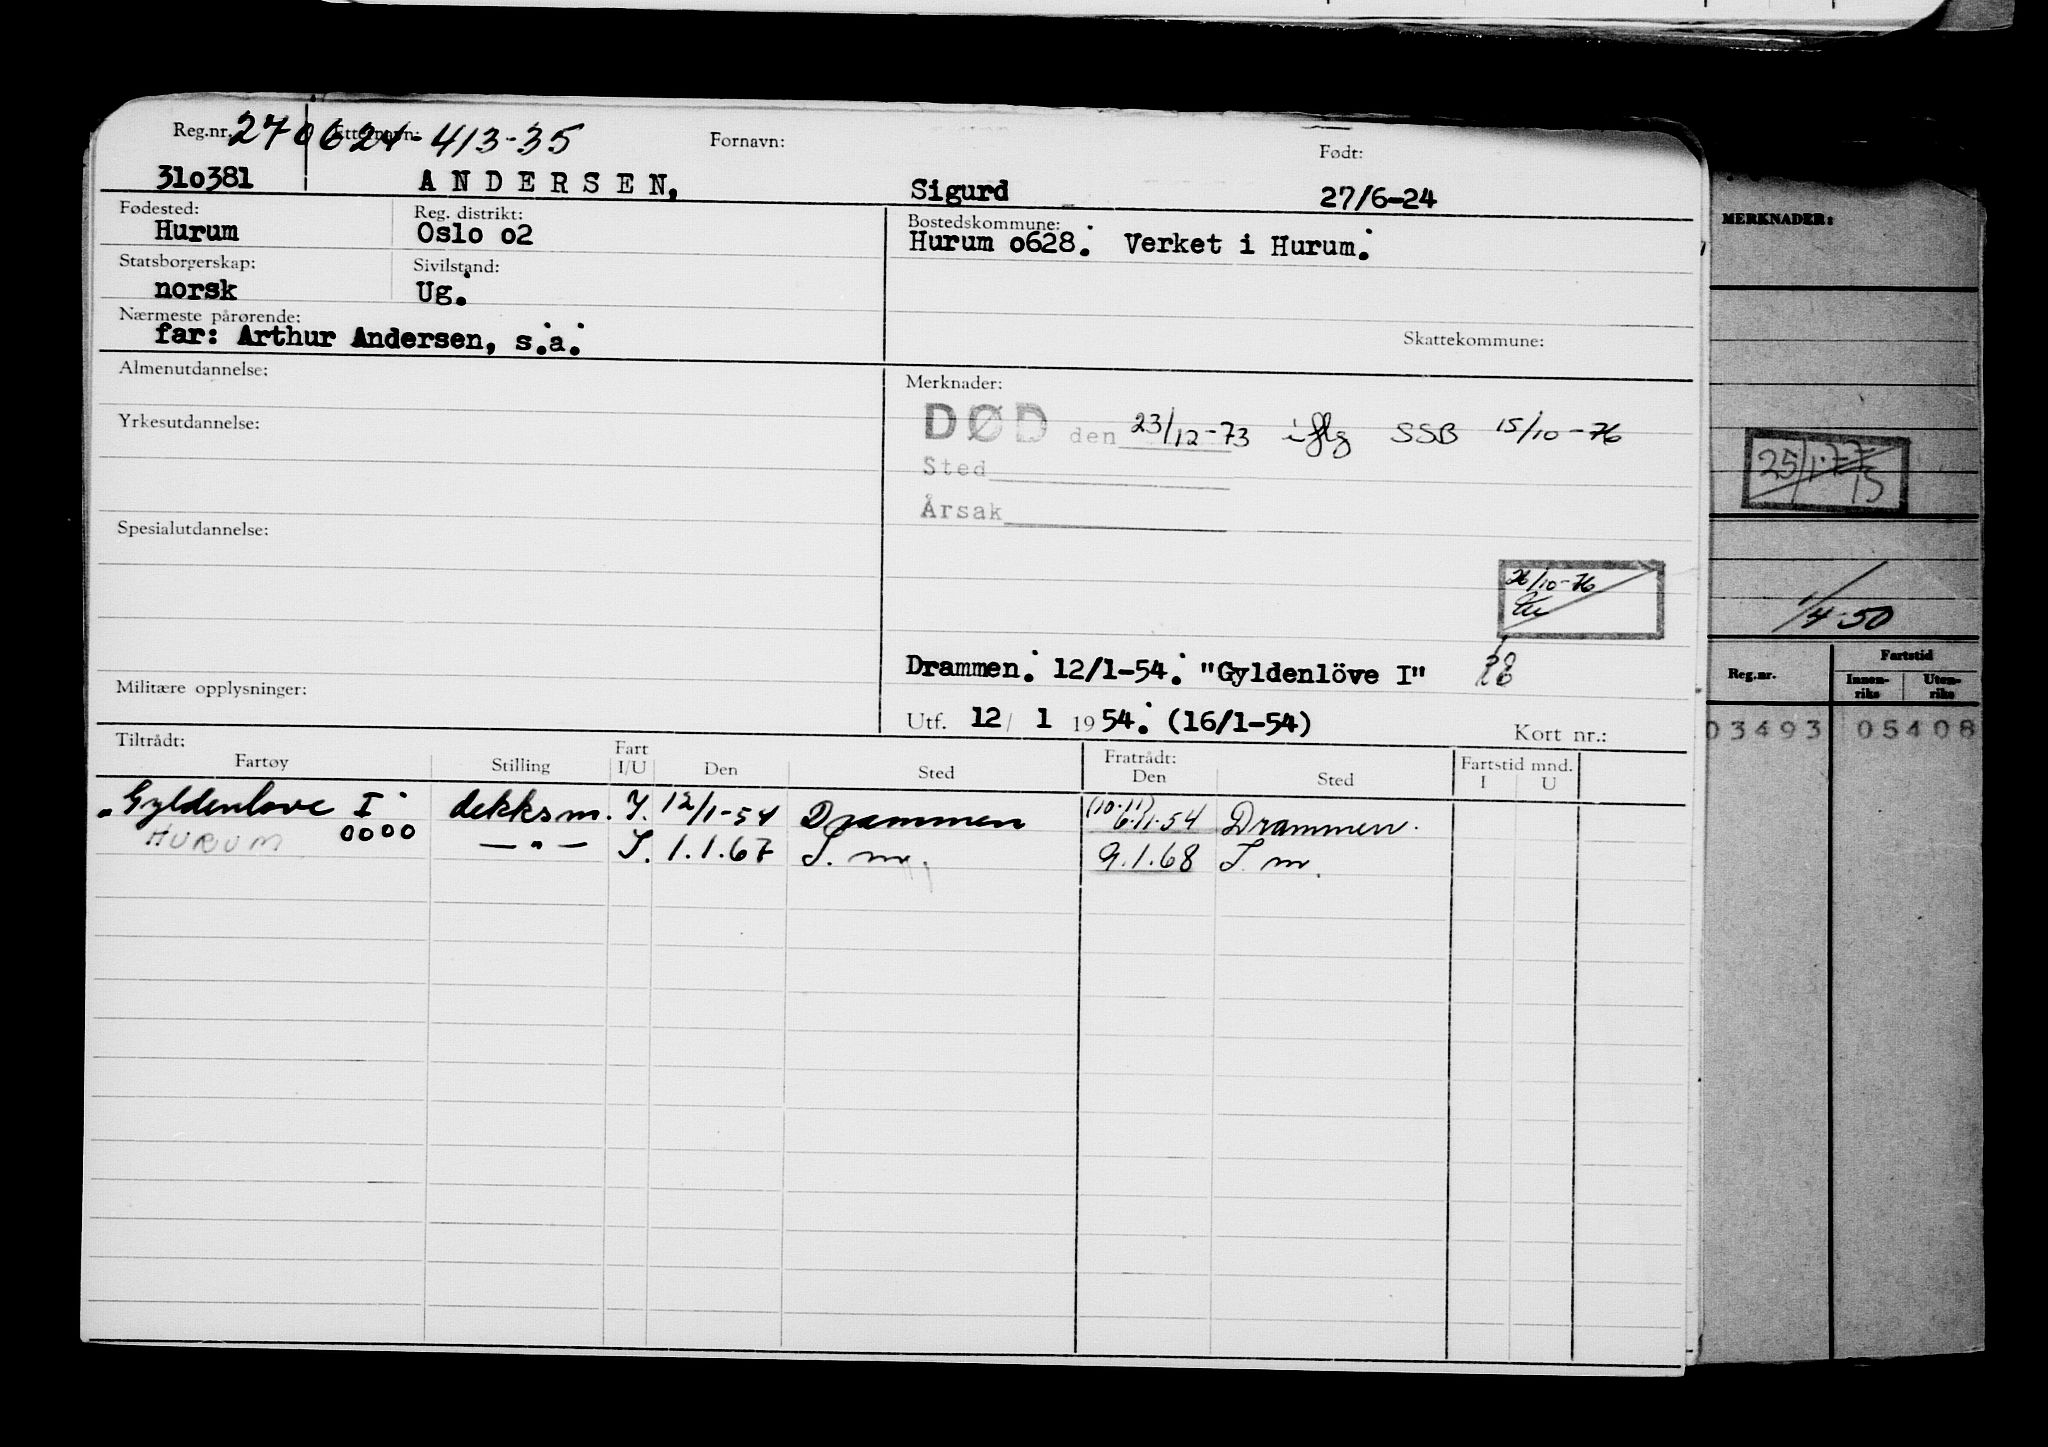 Reg.nr. 270624-413-35 Etternavn: Fornavn: Født:
310381 ANDERSEN, Sigurd 27/6-24
Fødested: Reg. distrikt: Bostedskommune:
Hurum Oslo o2 Hurum o628. Verket i Hurum.
Statsborgerskap: Sivilstand:
norsk Ug.
Nærmeste pårørende:
far: Arthur Andersen, s.a. Skattekommune:
Almenutdannelse: Merknader:
DØD den 23/12-73 iflg SSB 15/10-76
Yrkesutdannelse:
Sted
Årsak
Spesialutdannelse:
26/10-76
Drammen. 12/1-54. "Gyldenlöve I"
Militære opplysninger:
Utf. 12/ 1 1954. (16/1-54) Kort nr.:
Tiltrådt: Fratrådt: Fartstid mnd.
Fartøy Stilling Fart I/U Den Sted Den Sted I U
"Gyldenlove I" dekksm. I. 12/1-54 Drammen (10.11) 6.11.54 Drammen.
HURUM 0000 — " — I. 1.1.67 T. m. 9.1.68 T. m.
MERKNADER:
25/1-77
1/4-50
Reg.nr. Fartstid
Innen-riks Uten-riks
03493 05408